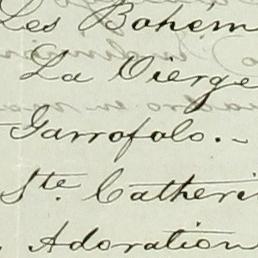 Les Bohém
La Vierge
Garrofolo.-
Ste. Catheri
Adoration